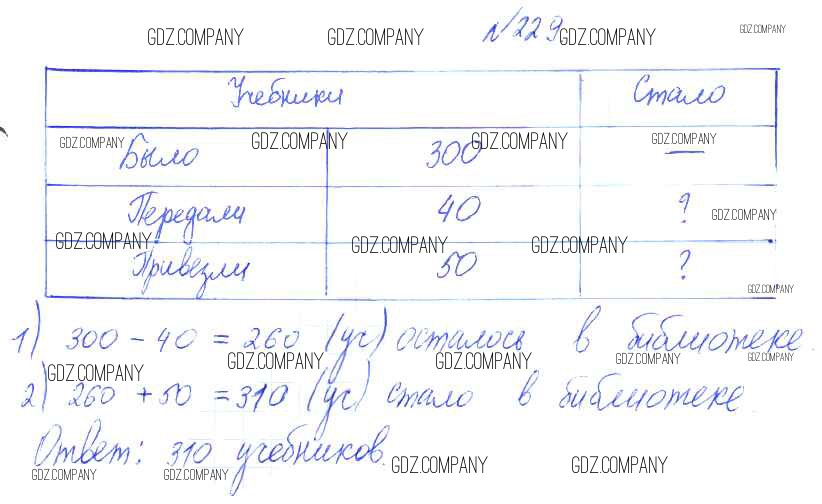 GDZ.COMPANY GDZ.COMPANY №229 GDZ.COMPANY GDZ.COMPANY
Учебники Стало
GDZ.COMPANY GDZ.COMPANY GDZ.COMPANY GDZ.COMPANY
Было 300 —
Передали 40 ? GDZ.COMPANY
GDZ.COMPANY GDZ.COMPANY GDZ.COMPANY
Привезли 50 ?
GDZ.COMPANY
1) 300 - 40 = 260 (уч) осталось в библиотеке.
GDZ.COMPANY GDZ.COMPANY GDZ.COMPANY GDZ.COMPANY GDZ.COMPANY
2) 260 + 50 = 310 (уч) стало в библиотеке
Ответ: 310 учебников.
GDZ.COMPANY GDZ.COMPANY GDZ.COMPANY GDZ.COMPANY